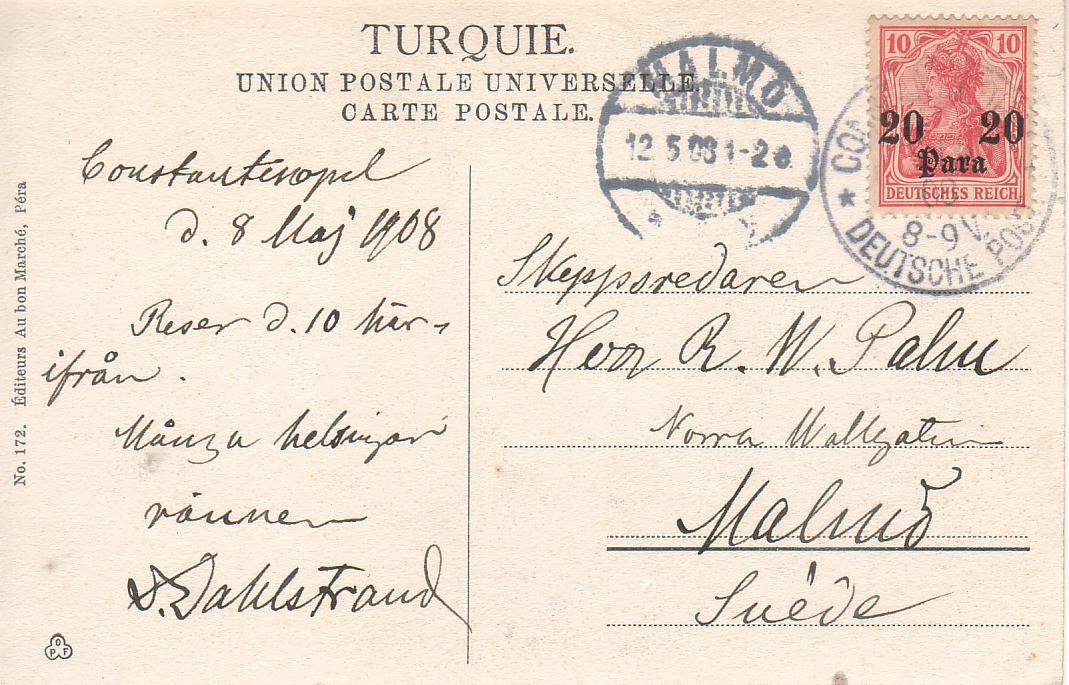 TURQUIE.
UNION POSTALE UNIVERSELLE
CARTE POSTALE.
MALMÖ
12.5.08 1-2 e
10 10
20 20
Para
DEUTSCHES REICH
8-9 V.
DEUTSCHE POST
Constantinopel
d. 8 Maj 1908
Reser d. 10 här-
ifrån.
Många helsingar
vännen
S. Dahlstrand
Skeppsredaren
Herr R. W. Palm
Norra Wallgatan
Malmö
Suède
No. 172. Éditeurs Au bon Marché, Péra
O P F